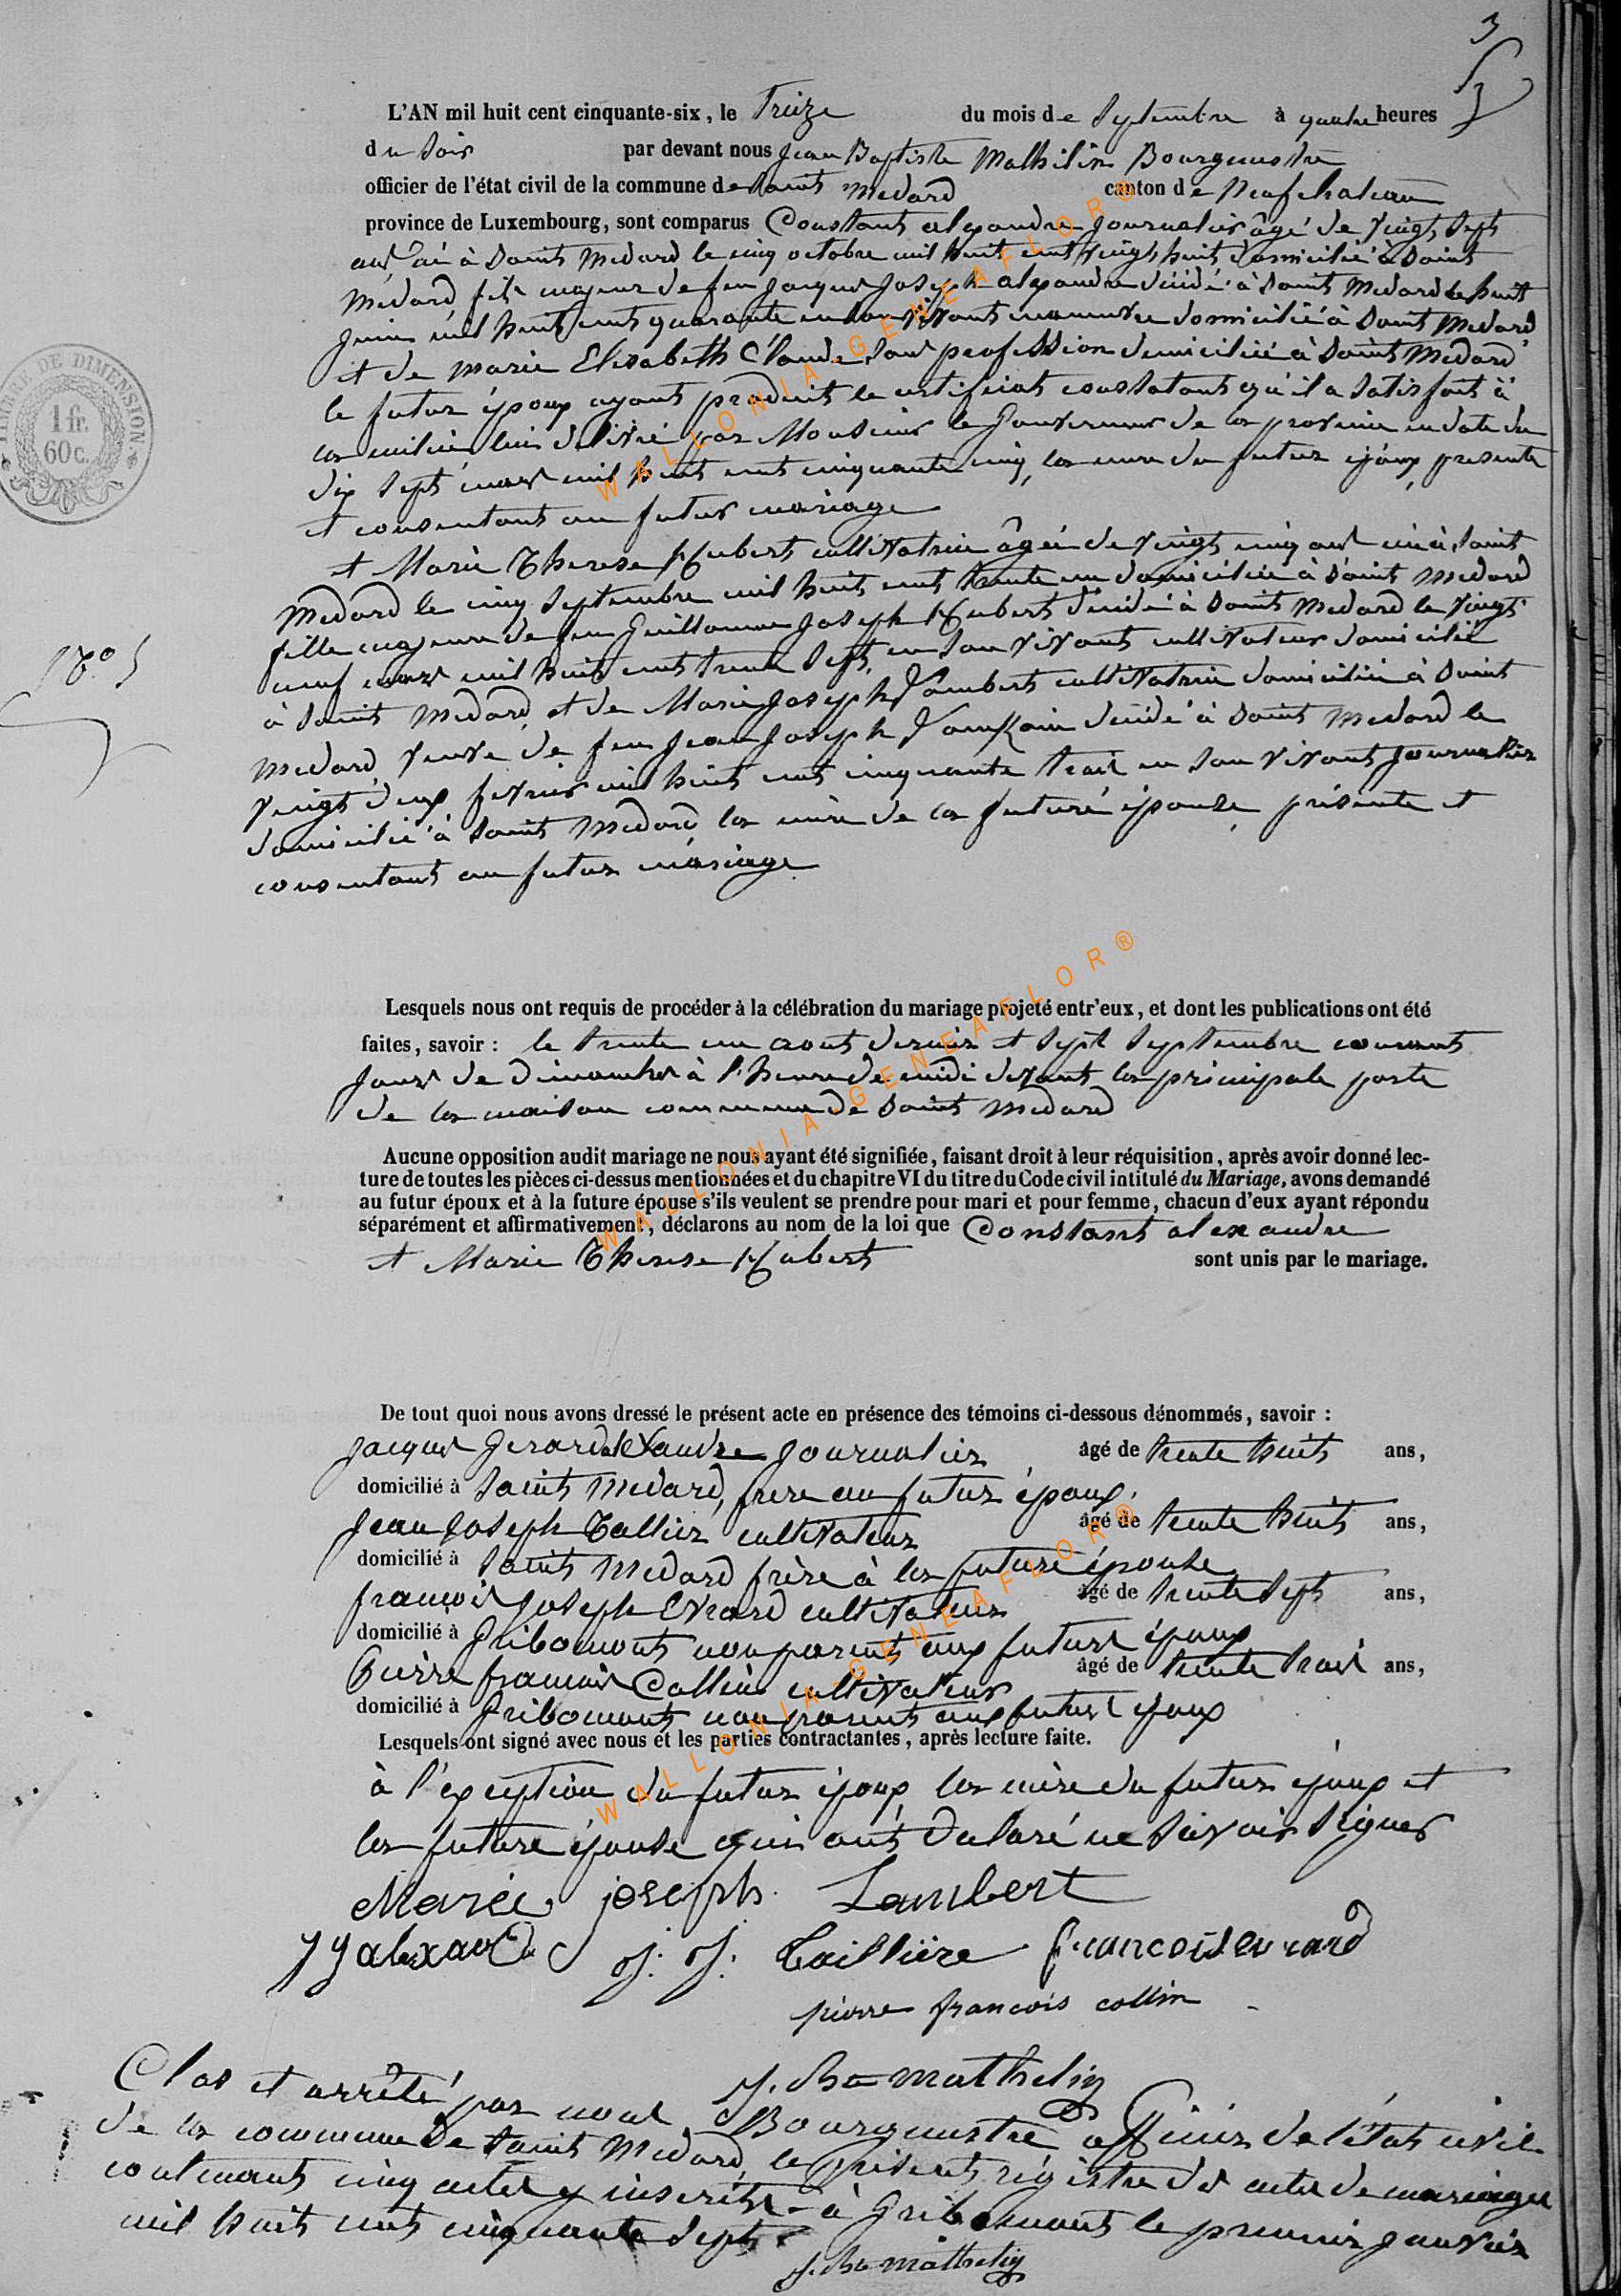 3
L'AN mil huit cent cinquante-six, le Treize du mois de Septembre à quatre heures
du soir par devant nous Jean Baptiste Mathelin Bourgmestre
officier de l'état civil de la commune de Saint Medard canton de Neufchateau
province de Luxembourg, sont comparus Constant alexandre journalier âgé de vingt sept
ans né à Saint Medard le cinq octobre mil huit cent vingt huit domicilié à Saint
Médard fils majeur de feu Jacques Joseph alexandre décédé à Saint Medard le huit
juin mil huit cent quarante un en son vivant domicilié à Saint Medard
et de Marie Elisabeth Claude sans profession domiciliée à Saint Medard
le futur époux ayant produit le certificat constatant qu'il a satisfait à
la milice lui délivré par Monsieur le Gouverneur de la province en date du
dix sept mars mil huit cent cinquante cinq, la mere du futur époux presente
et consentant au futur mariage
et Marie Therese Hubert cultivatrice âgée de vingt cinq ans née à Saint
Medard le cinq Septembre mil huit cent trente un domiciliée à Saint Medard
fille majeure de feu Guillaume Joseph Hubert décédé à Saint Medard le vingt
neuf mars mil huit cent trente sept, en son vivant cultivateur domicilié
à Saint Medard et de Marie Joseph Lambert cultivatrice domiciliée à Saint
Medard veuve de feu Jean Joseph décédé à Saint Medard le
vingt deux fevrier mil huit cent cinquante trois en son vivant journalier
domicilié à Saint Medard la mère de la future épouse présente et
consentant au futur mariage
N° 5
TIMBRE DE DIMENSION
1 fr.
60 c.
Lesquels nous ont requis de procéder à la célébration du mariage projeté entr'eux, et dont les publications ont été
faites, savoir : le trente un aout dernier et sept Septembre courant
jours de dimanches à l'heure de midi devant la principale porte
de la maison commune de Saint Medard
Aucune opposition audit mariage ne nous ayant été signifiée, faisant droit à leur réquisition, après avoir donné lec-
ture de toutes les pièces ci-dessus mentionnées et du chapitre VI du titre du Code civil intitulé du Mariage, avons demandé
au futur époux et à la future épouse s'ils veulent se prendre pour mari et pour femme, chacun d'eux ayant répondu
séparément et affirmativement, déclarons au nom de la loi que Constant alexandre
et Marie Therese Hubert sont unis par le mariage.
De tout quoi nous avons dressé le présent acte en présence des témoins ci-dessous dénommés, savoir :
Jacques Gerard alexandre journalier âgé de trente huit ans,
domicilié à Saint Medard, frere au futur époux,
Jean Joseph Tallier cultivateur âgé de trente huit ans,
domicilié à Saint Medard frère à la future épouse
françois Joseph Evrard cultivateur âgé de trente sept ans,
domicilié à Gribomont non parent aux futurs époux
Pierre françois Collin cultivateur âgé de trente trois ans,
domicilié à Gribomont non parent aux futurs époux
Lesquels ont signé avec nous et les parties contractantes, après lecture faite.
à l'exception du futur époux la mère du futur époux et
la future épouse qui ont déclaré ne savoir signer
Marie joseph Lambert
J G alexandre J. J. Taillière francois evrard
pierre francois collin
J. Bte mathelin
Clos et arrêté par nous Bourgmestre officier de l'état civil
de la commune de Saint Medard le présent régistre des actes de mariages
contenant cinq actes y inscrits à Gribomont le premier janvier
mil huit cent cinquante sept
J. Bte mathelin
WALLONIA-GENEAFLOR®
WALLONIA-GENEAFLOR®
WALLONIA-GENEAFLOR®